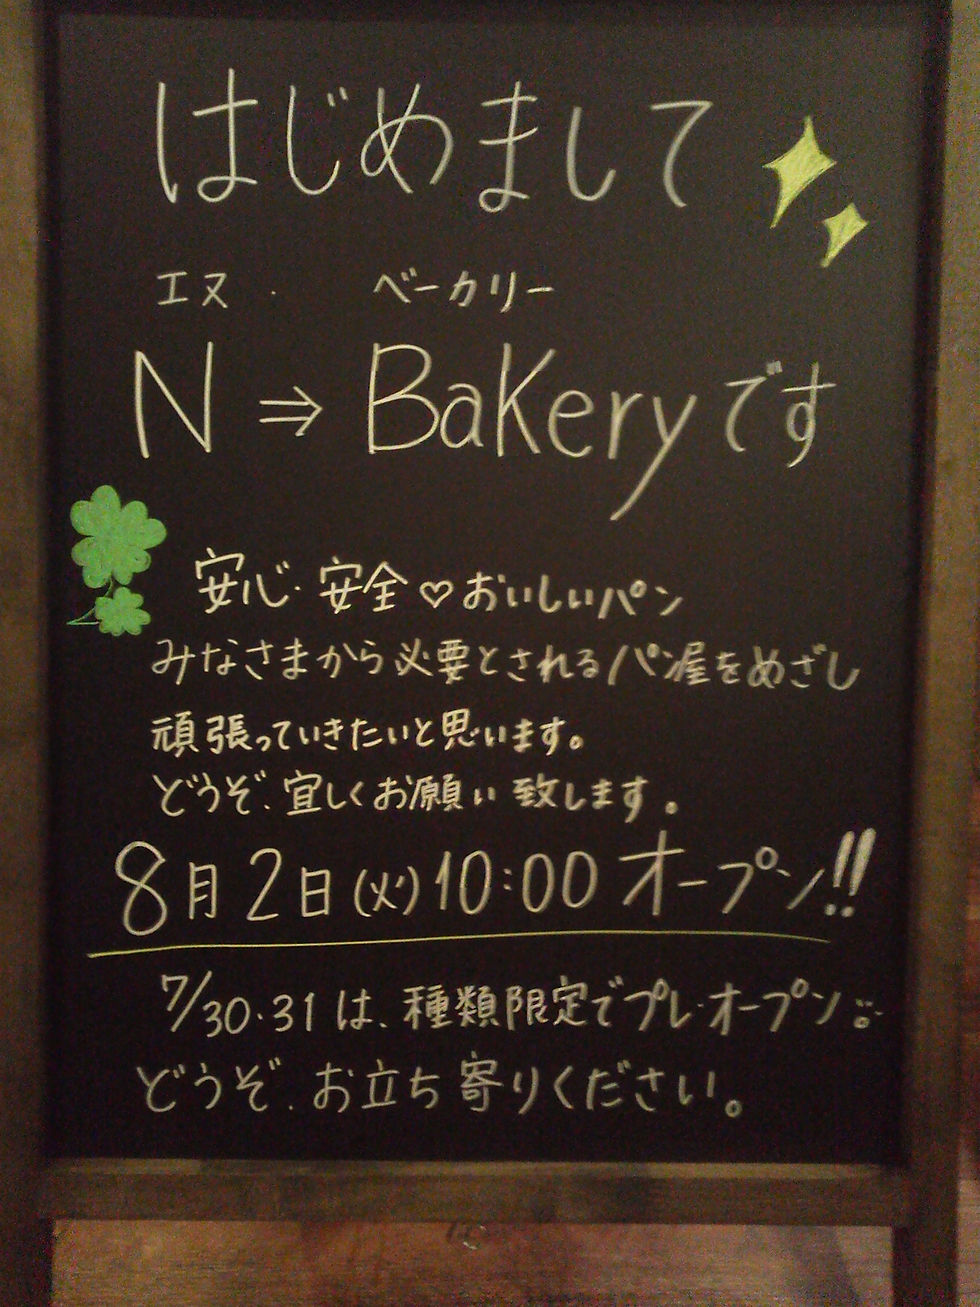 はじめまして
エヌ ベーカリー
N ⇒ Bakery です
安心・安全♡おいしいパン
みなさまから必要とされるパン屋をめざし
頑張っていきたいと思います。
どうぞ、宜しくお願い致します。
8月2日(火)10:00 オープン!!
7/30・31は、種類限定でプレ・オープン
どうぞ、お立ち寄りください。